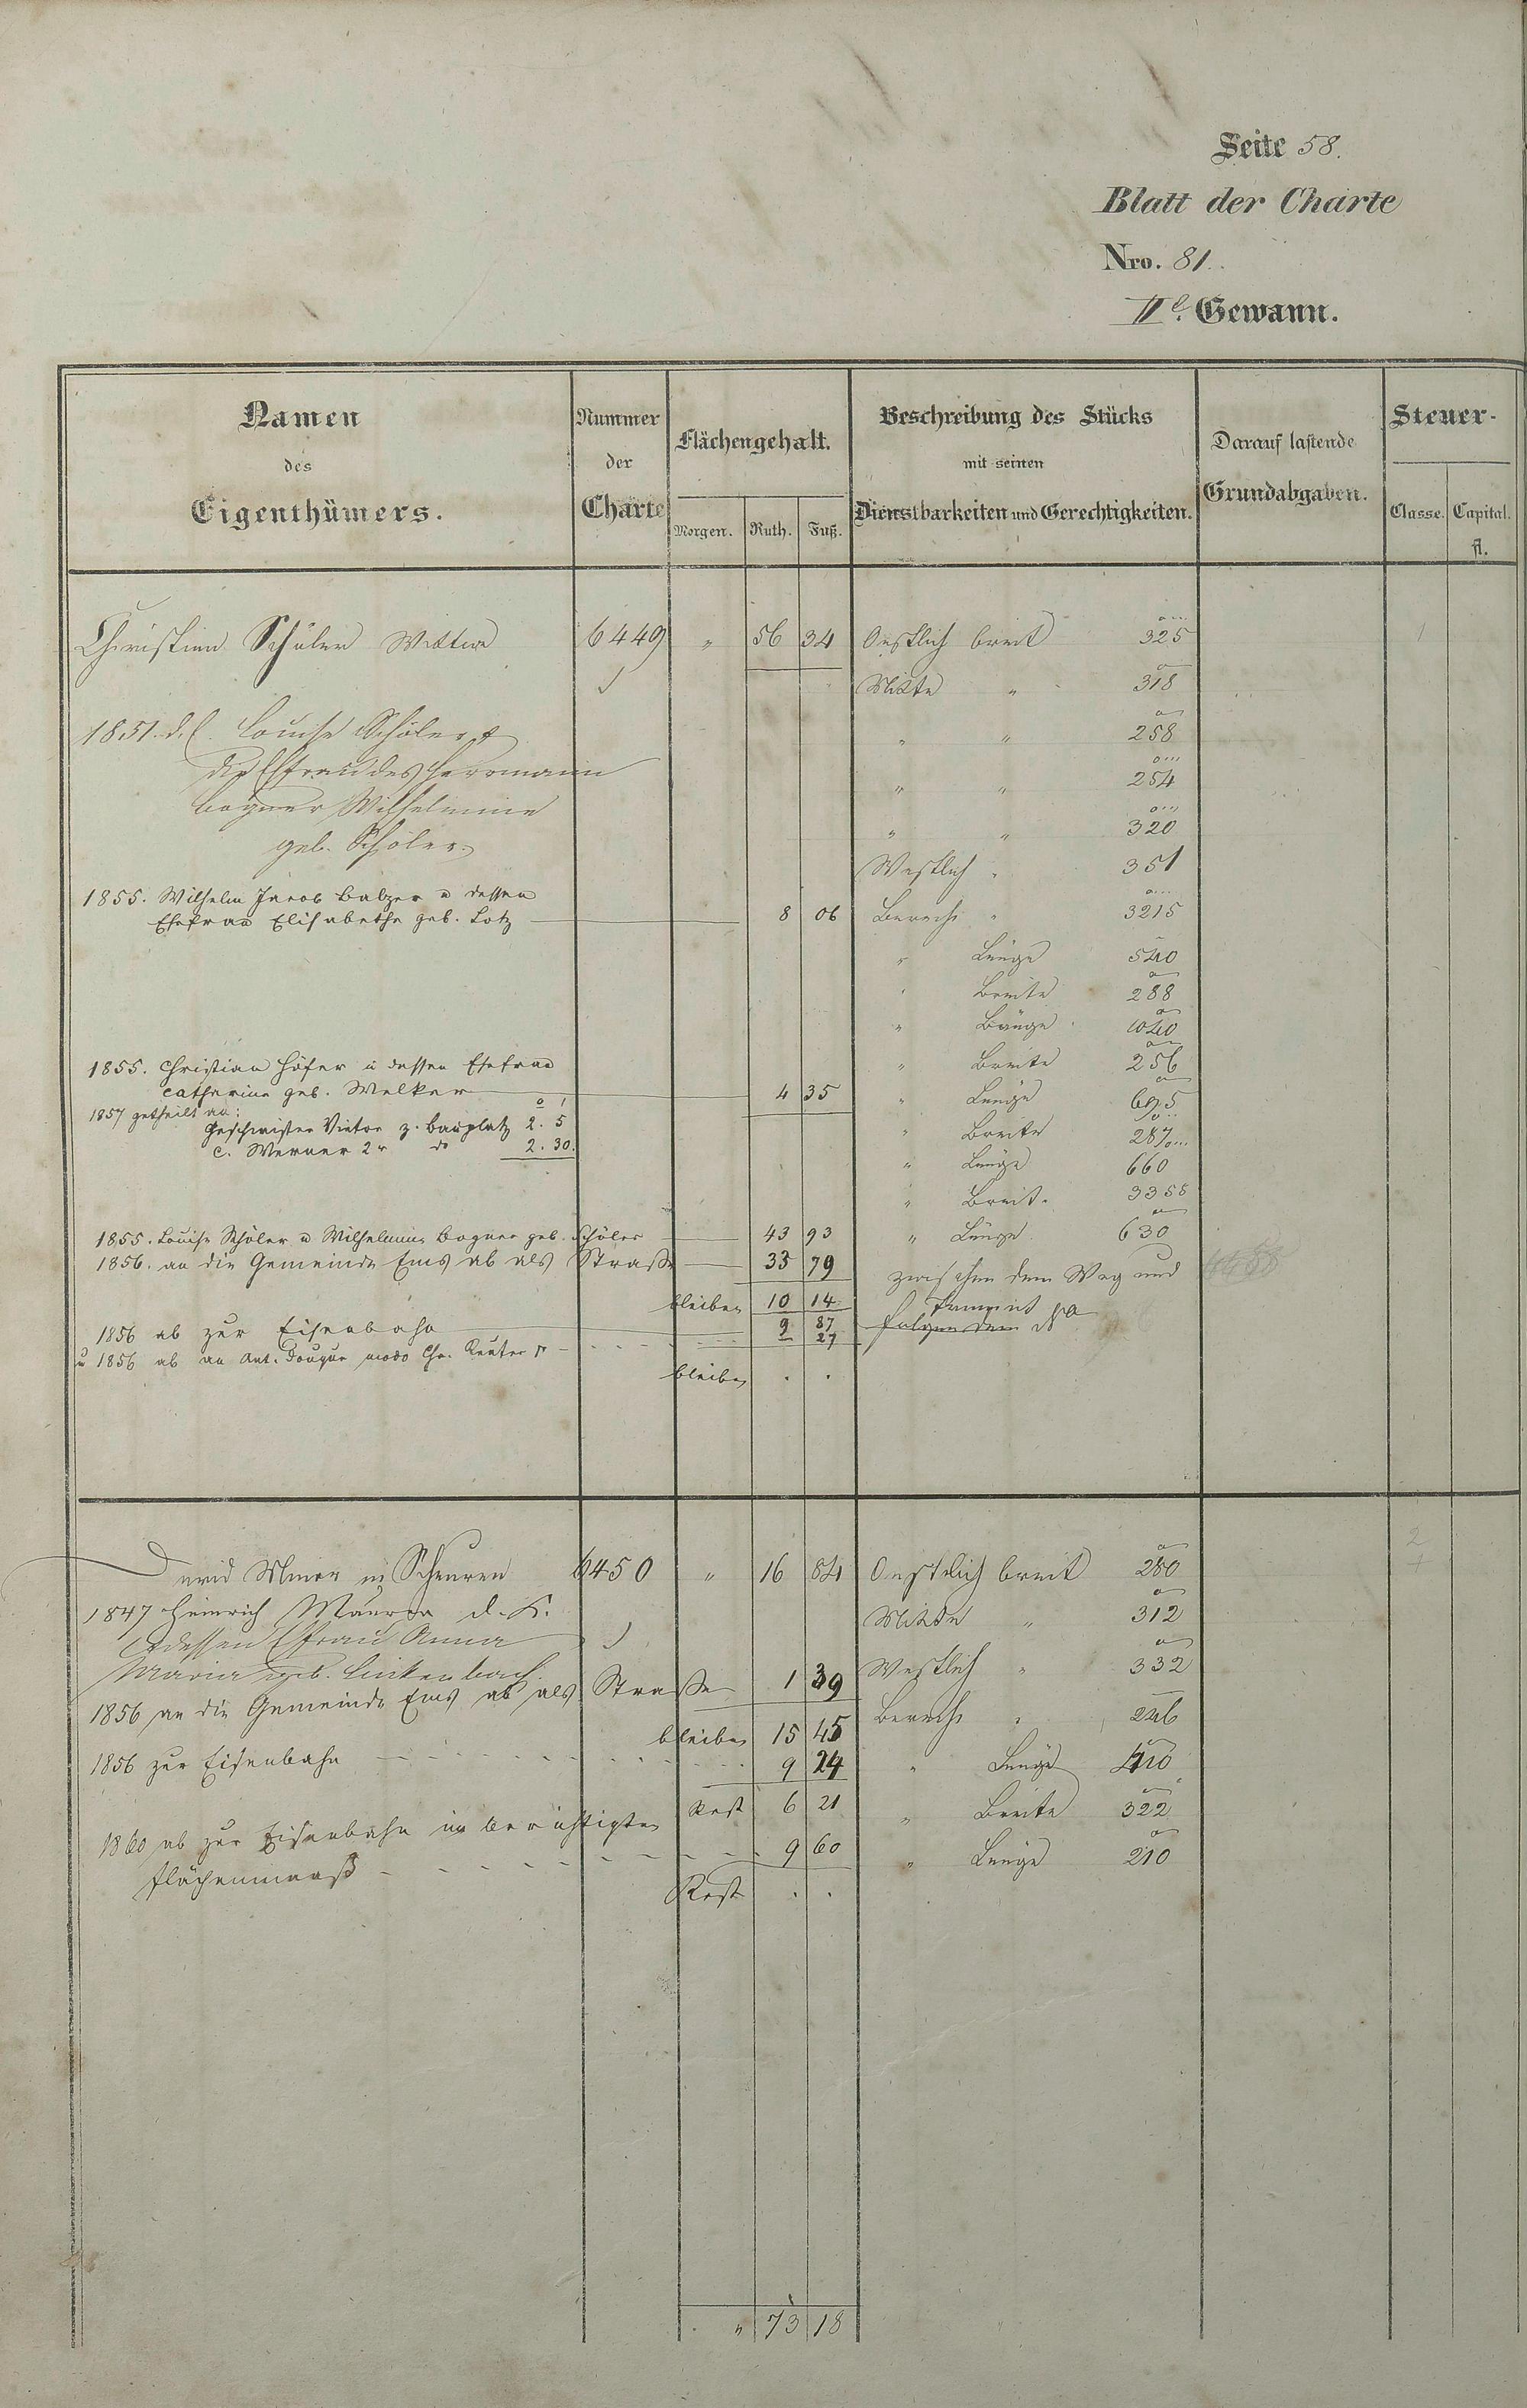 Seite 58.
Blatt der Charte
Nro. 81.
IIe. Gewann.
Namen des Eigenthümers.
Nummer der Charte
Flächengehalt.
Morgen. Ruth. Fuß.
Beschreibung des Stücks mit seinen Dienstbarkeiten und Gerechtigkeiten.
Darauf lastende Grundabgaben.
Steuer-
Classe. Capital.
fl.
Christian Schöler Wittwe 6449 " 56 34 Oestlich breit 325 1
Mitte " 318
1851. d. C. Louise Schöler &
" " 258
die Ehfrau des Herrmann
" " 254
Bogner Wilhelmine
" " 320
geb. Schöler.
Westlich " 351
1855. Wilhelm Jacob Balzer u dessen
Ehefrau Elisabetha geb. Lotz 8 06 Berech " 3215
" Länge 540
" Breite 288
" Länge 1040
1855. Christian Höfer u dessen Ehefrau
" Breite 256
Catharina geb. Welker 4 35 " Länge 695
1857 getheilt an:
Geschwister Vietor z. Bauplatz 2. 5
" Breite 287
C. Werner 2r do 2. 30.
" Länge 660
" Breit. 3355
1855. Louise Schöler u Wilhelmine Bogner geb. Schöler 43 93 " Länge 630
1856. an die Gemeinde Ems ab als Straße 33 79 zwischen dem Weg und
bleiben 10 14
1856 ab zur Eisenbahn 9 87 folgendem No
u 1856 ab an Ant. modo Chr. Reuter 27
bleiben . .
David Maurer in Scheuren 6450 " 16 84 Oestlich breit 280 2
1847 Heinrich Maurer d. K.
Mitte " 312
& dessen Ehfrau Anna
Maria geb. Linkenbach.
Westlich " 332
1856 an die Gemeinde Ems ab als Straße 1 39
bleiben 15 45 Berech " 246
1856 zur Eisenbahn 9 24 " Länge 410
Rest 6 21 " Breite 322
1860 ab zur Eisenbahn im berichtigten
Flächenmaaß 9 60 " Länge 210
Rest . .
" 73 18